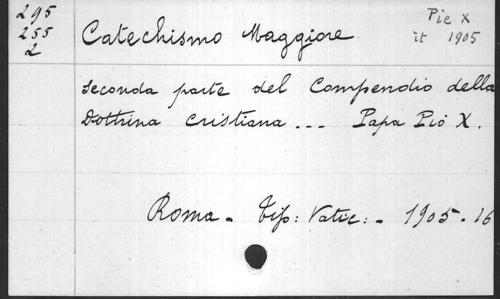 295
255
2
Catechismo Maggiore
Pie X
it 1905
seconda parte del Compendio della
Dottrina cristiana ... Papa Pio X.
Roma - Tip: Vatic: - 1905. 16